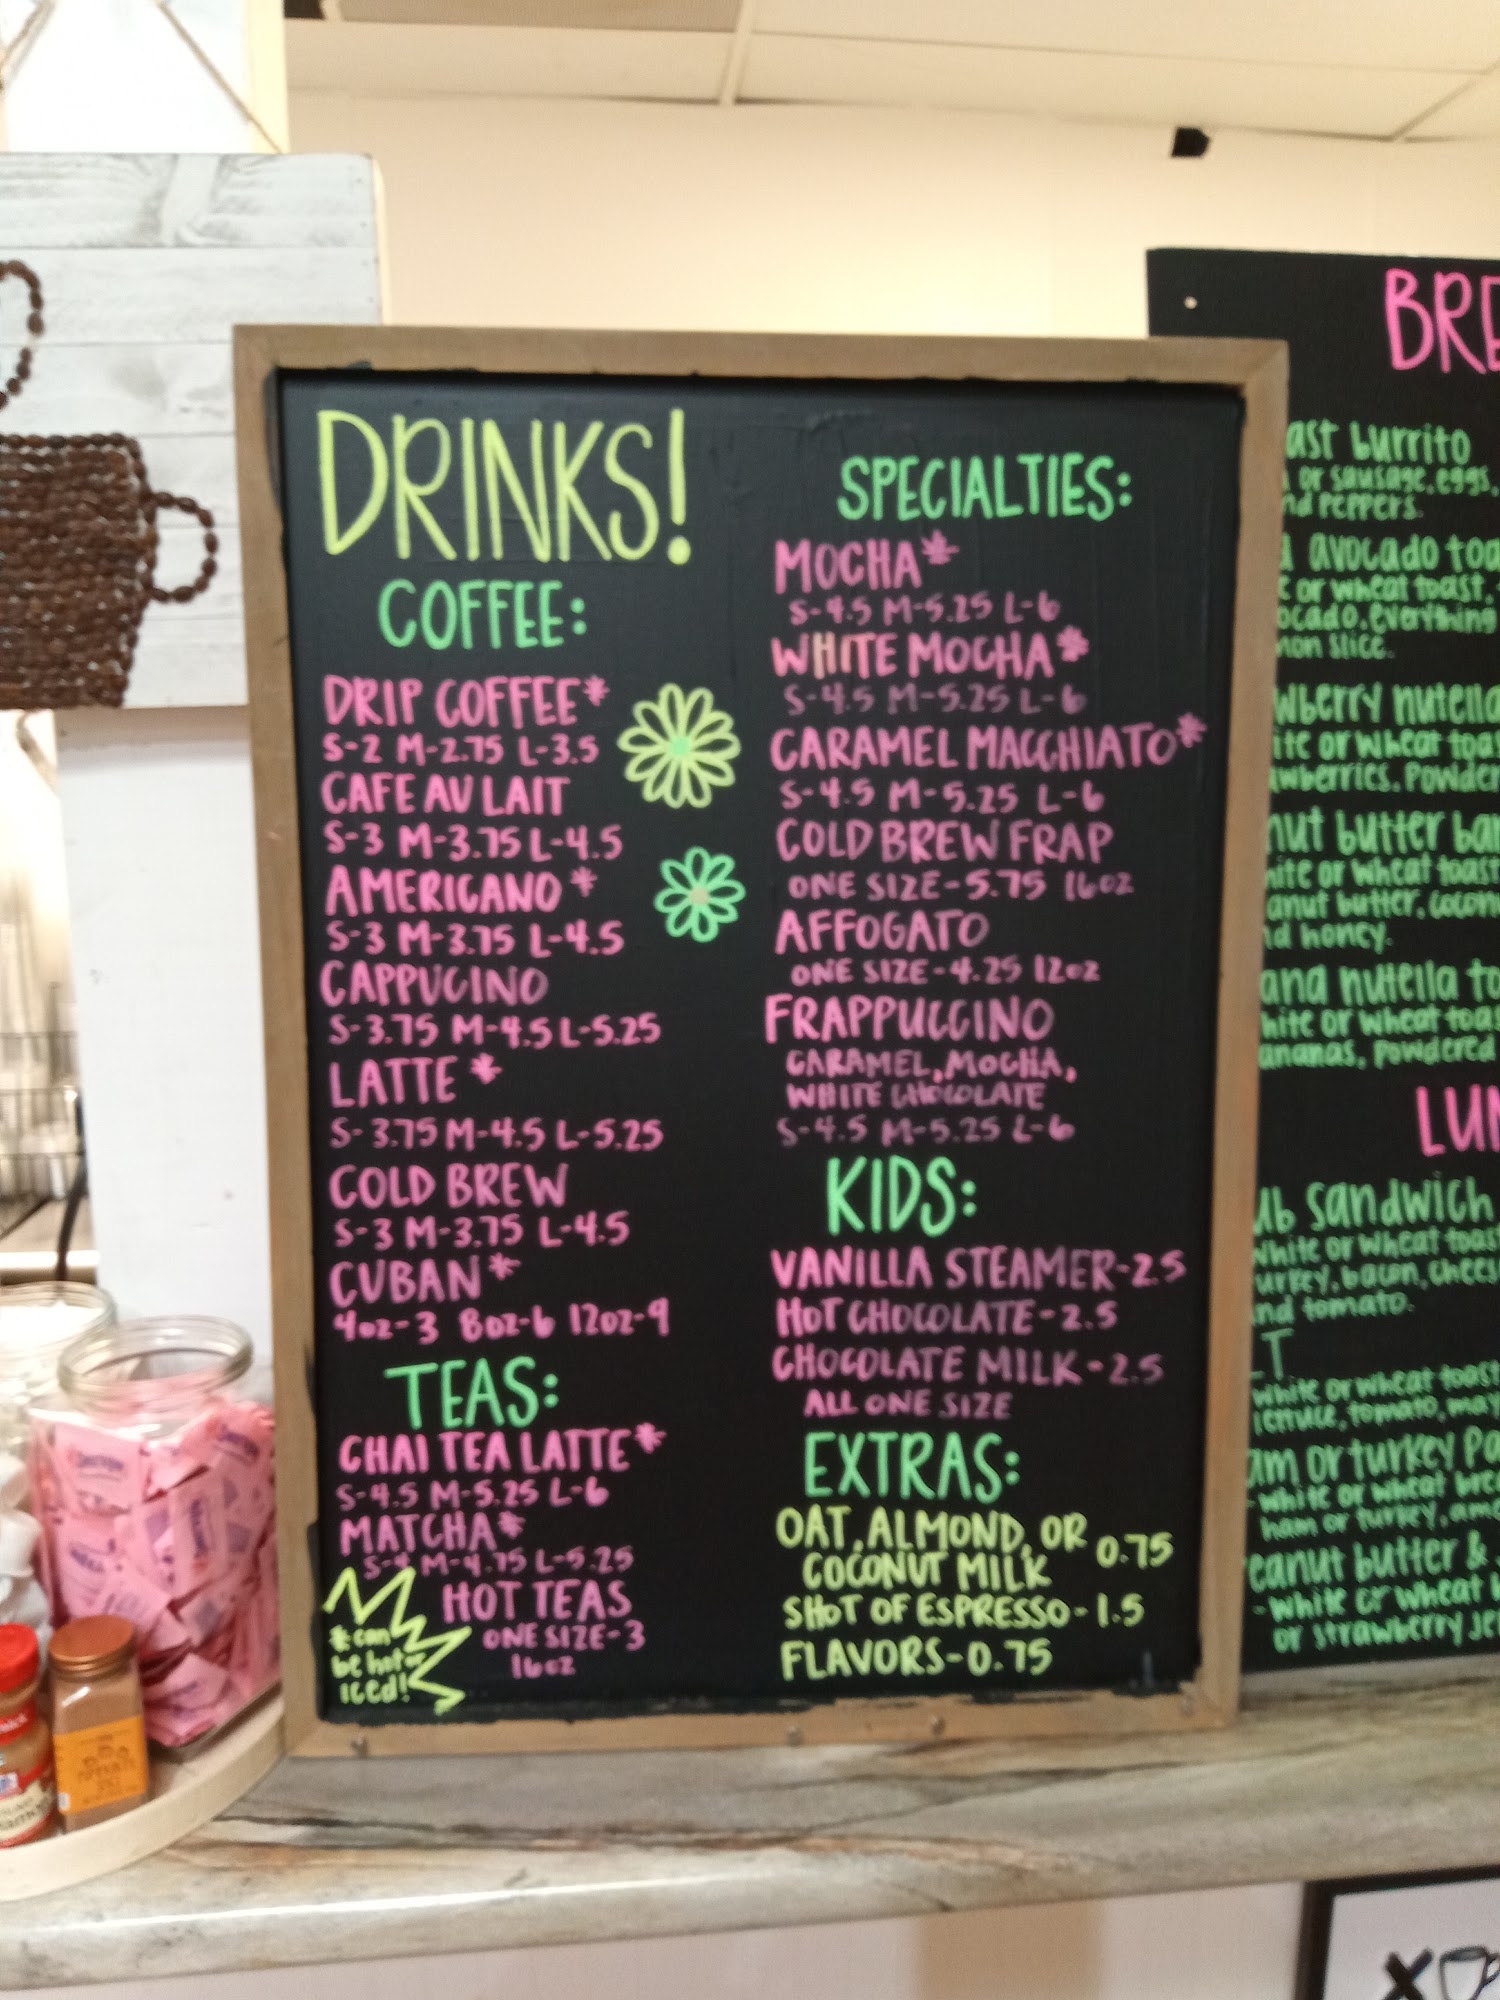 DRINKS!
COFFEE:
DRIP COFFEE*
S-2 M-2.75 L-3.5
CAFE AU LAIT
S-3 M-3.75 L-4.5
AMERICANO *
S-3 M-3.75 L-4.5
CAPPUCINO
S-3.75 M-4.5 L-5.25
LATTE *
S-3.75 M-4.5 L-5.25
COLD BREW
S-3 M-3.75 L-4.5
CUBAN*
4oz-3 8oz-6 12oz-9
TEAS:
CHAI TEA LATTE*
S-4.5 M-5.25 L-6
MATCHA*
S-4 M-4.75 L-5.25
HOT TEAS
ONE SIZE-3
16oz
* can
be hot or
iced!
SPECIALTIES:
MOCHA*
S-4.5 M-5.25 L-6
WHITE MOCHA*
S-4.5 M-5.25 L-6
CARAMEL MACCHIATO*
S-4.5 M-5.25 L-6
COLD BREW FRAP
ONE SIZE-5.75 16oz
AFFOGATO
ONE SIZE-4.25 12oz
FRAPPUCCINO
CARAMEL, MOCHA,
WHITE CHOCOLATE
S-4.5 M-5.25 L-6
KIDS:
VANILLA STEAMER-2.5
HOT CHOCOLATE-2.5
CHOCOLATE MILK-2.5
ALL ONE SIZE
EXTRAS:
OAT, ALMOND, OR 0.75
COCONUT MILK
SHOT OF ESPRESSO-1.5
FLAVORS-0.75
BRE
ast burrito
or sausage, eggs,
nd peppers.
avocado toa
or wheat toast,
ocado, everything
mon slice.
wberry nutella
ite or wheat toas
awberries, powder
nut butter ban
hite or wheat toast
anut butter, cocon
nd honey.
ana nutella to
hite or wheat toas
ananas, powdered
LUN
ub sandwich
white or wheat toast
urkey, bacon, chees
nd tomato.
LT
white or wheat toast
lettuce, tomato, may
am or turkey pa
-white or wheat bre
ham or turkey, ame
eanut butter &
-white or wheat
or strawberry je